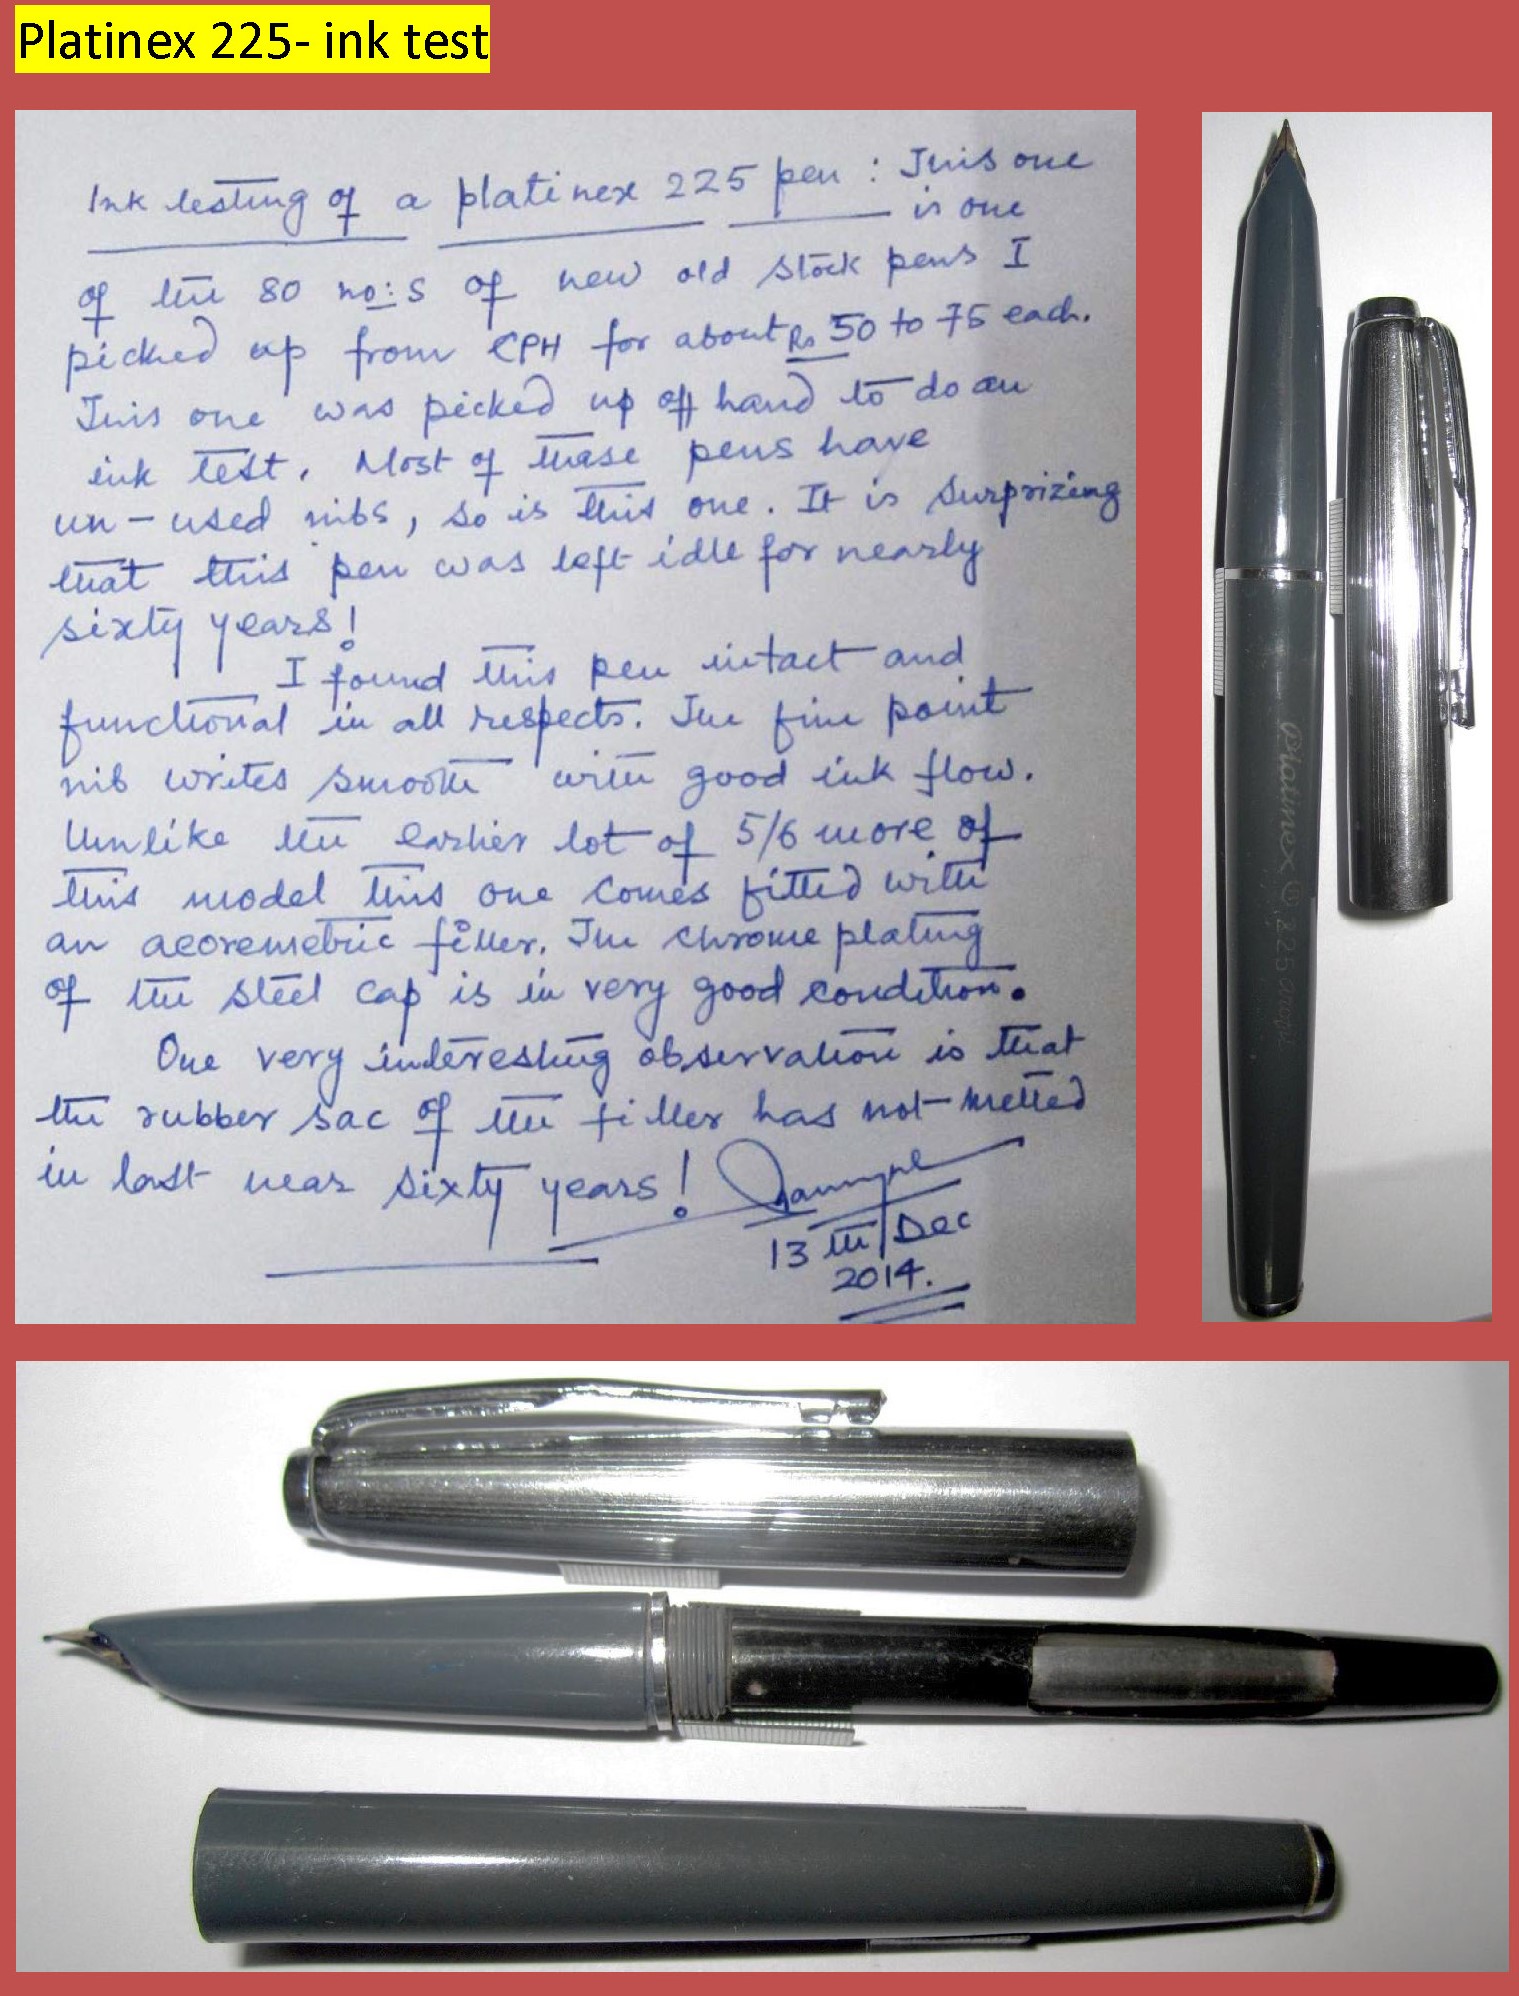 Platinex 225- ink test
Ink testing of a platinex 225 pen : This one
is one
of the 80 no:s of new old stock pens I
picked up from CPH for about Rs 50 to 75 each.
This one was picked up off hand to do an
ink test. Most of these pens have
un-used nibs, so is this one. It is surprizing
that this pen was left idle for nearly
sixty years!
I found this pen intact and
functional in all respects. The fine point
nib writes smooth with good ink flow.
Unlike the earlier lot of 5/6 more of
this model this one comes fitted with
an aeoremetric filler. The chrome plating
of the steel cap is in very good condition.
One very interesting observation is that
the rubber sac of the filler has not melted
in last near sixty years!
13th/Dec
2014.
Platinex